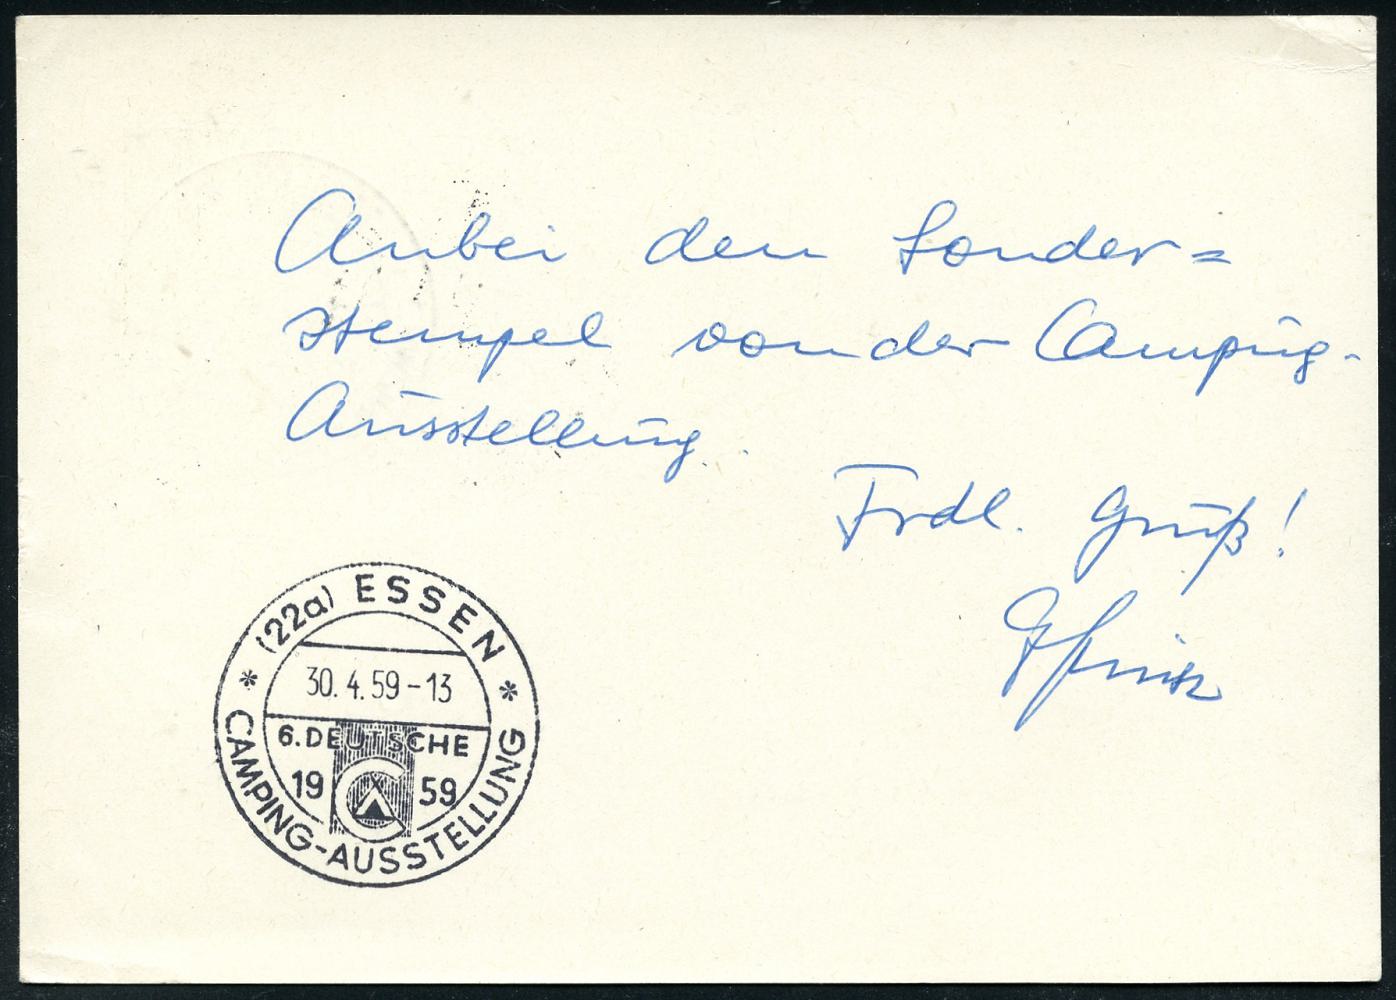 Anbei den Sonder=
stempel von der Camping-
Ausstellung.
Frdl. Gruß!
(22a) ESSEN
30.4.59-13
6. DEUTSCHE
1959
CAMPING-AUSSTELLUNG